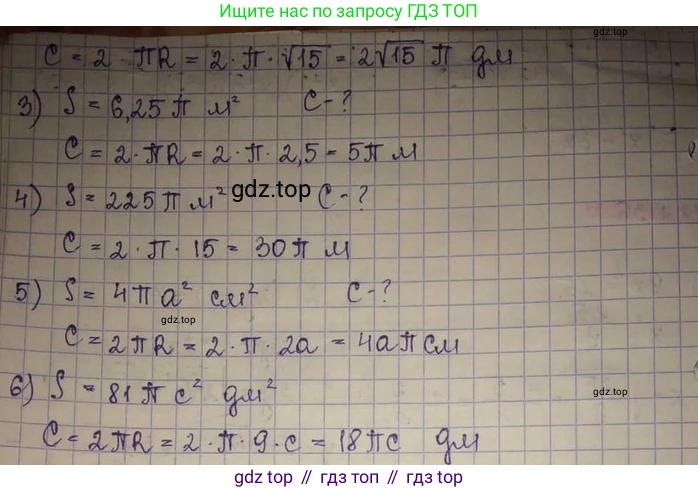 Ищите нас по запросу ГДЗ ТОП
gdz.top
C = 2 · πR = 2 · π · √15 = 2√15 π дм
3) S = 6,25π м² C - ?
C = 2 · πR = 2 · π · 2,5 = 5π м
4) S = 225π м² C - ?
gdz.top
C = 2 · π · 15 = 30π м
5) S = 4πa² см² C - ?
gdz.top
C = 2πR = 2 · π · 2a = 4aπ см
6) S = 81πc² дм²
gdz.top
C = 2πR = 2 · π · 9 · c = 18πc дм
gdz top // гдз топ // gdz.top